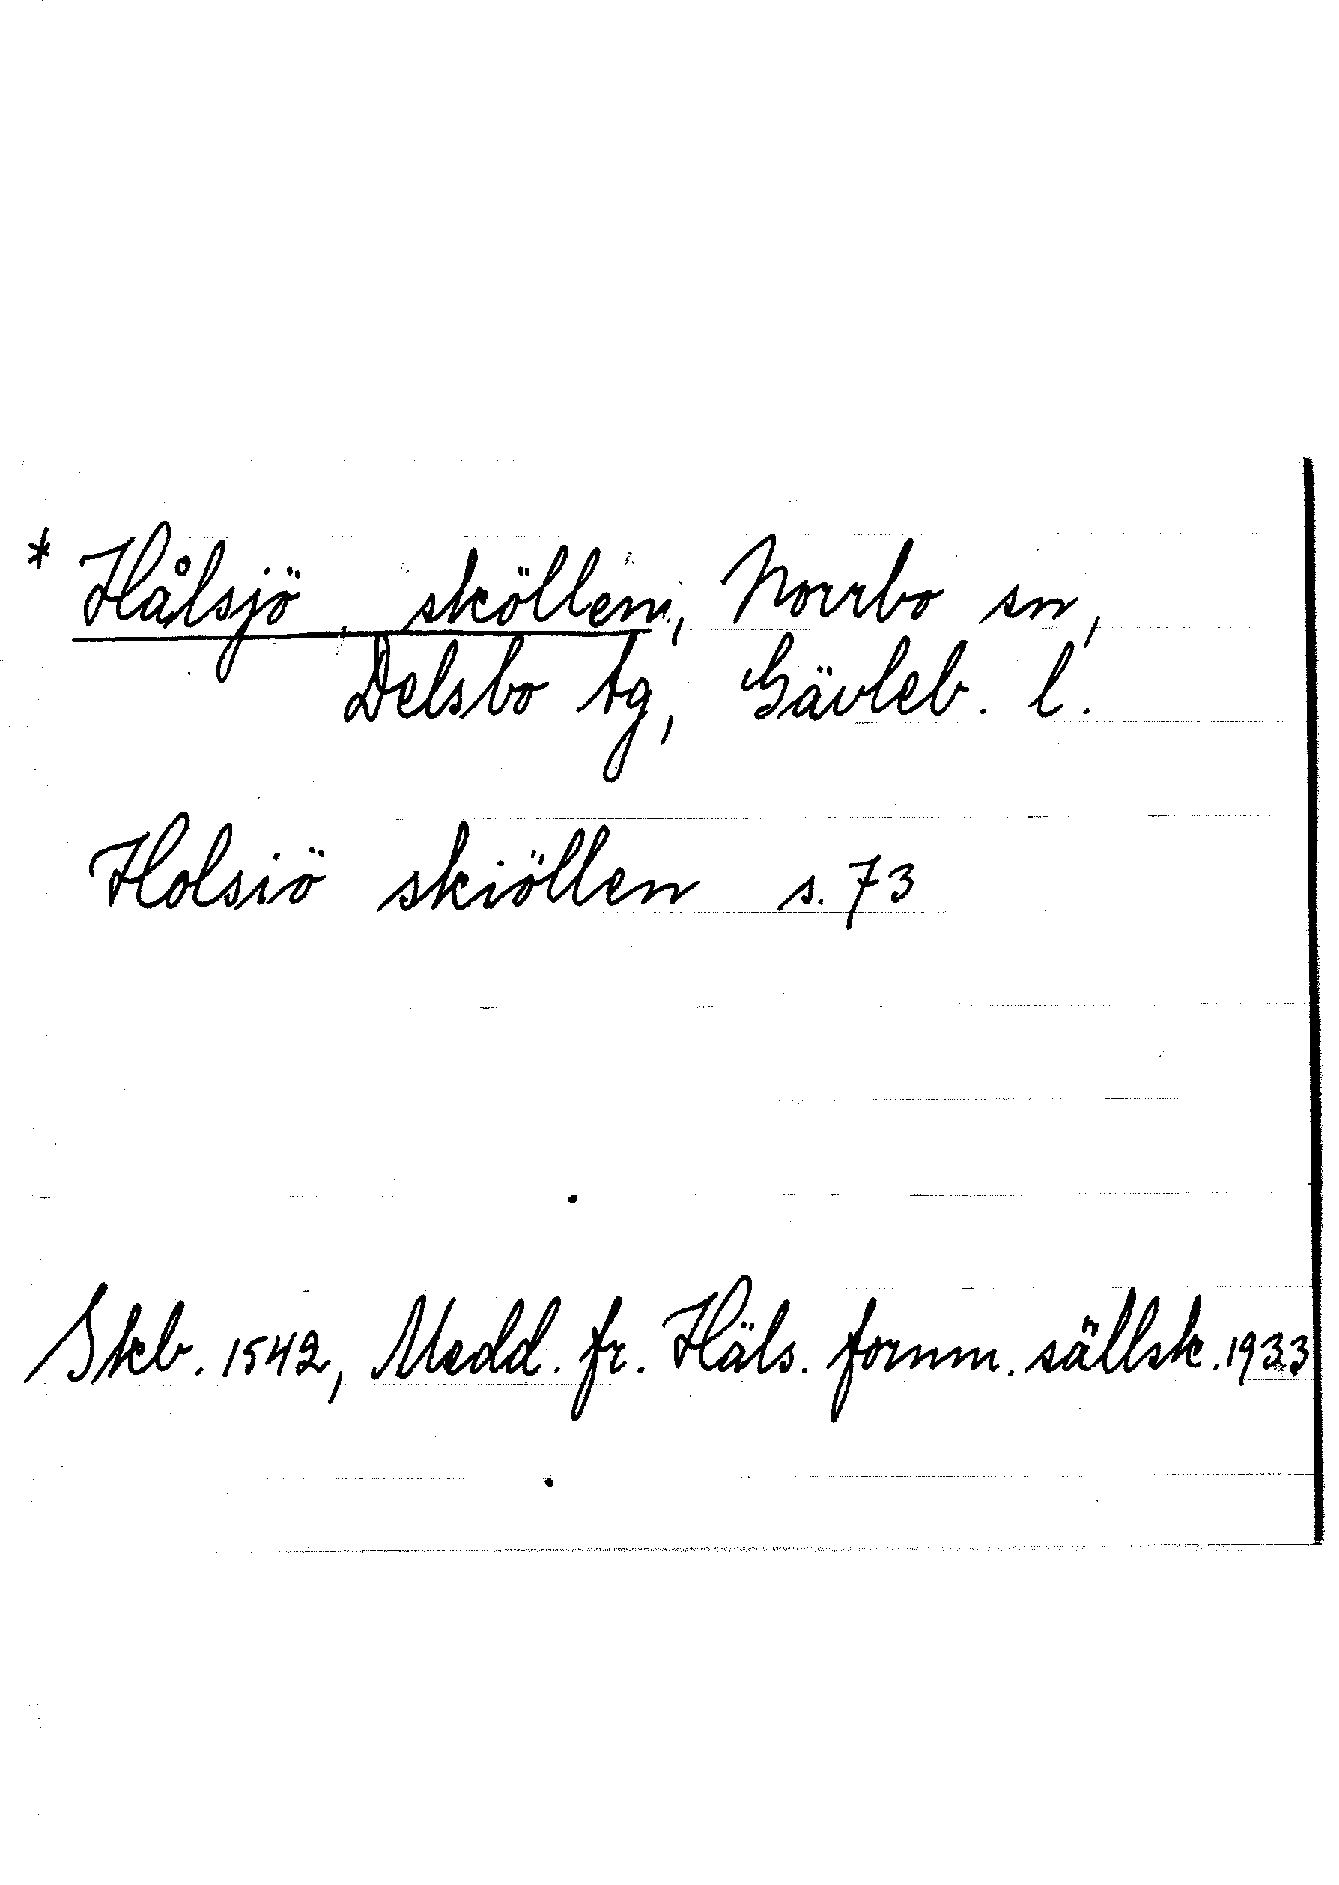 * Hålsjö, sköllen, Norrbo sn,
Delsbo tg, Gävleb. l.
Holsiö skiöllen s. 73
Skb. 1542, Medd. fr. Häls. fornm. sällsk. 1933